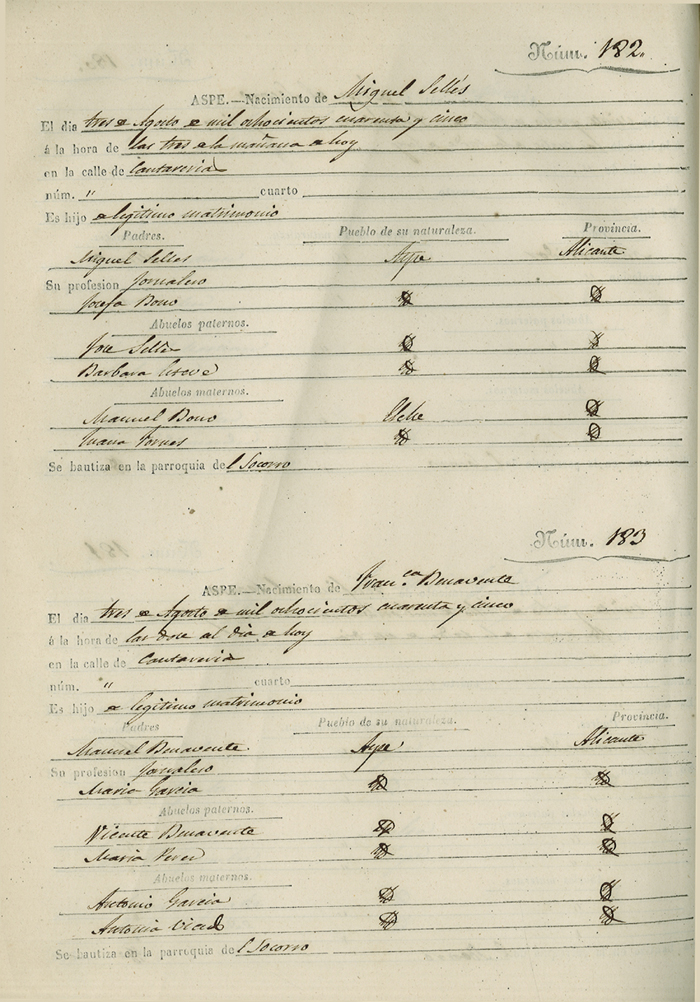 Núm. 182.
ASPE.—Nacimiento de Miguel Sellés
El dia tres de Agosto de mil ochocientos cuarenta y cinco
á la hora de las tres de la mañana de hoy
en la calle de Cantareria
núm. " cuarto
Es hijo de legitimo matrimonio
Padres. Pueblo de su naturaleza. Provincia.
Miguel Selles Aspe Alicante
Su profesion Jornalero
Josefa Bono
Abuelos paternos.
Jose Selles
Barbara
Abuelos maternos.
Manuel Bono Elche
Juana
Se bautiza en la parroquia del Socorro
Núm. 183
ASPE.—Nacimiento de Franca Benavente
El dia tres de Agosto de mil ochocientos cuarenta y cinco
á la hora de las doce al dia de hoy
en la calle de Cantareria
núm. " cuarto
Es hijo de legitimo matrimonio
Padres Pueblo de su naturaleza. Provincia.
Manuel Benavente Aspe Alicante
Su profesion Jornalero
Maria Garcia
Abuelos paternos.
Vicente Benavente
Maria
Abuelos maternos.
Antonio Garcia
Antonia
Se bautiza en la parroquia del Socorro